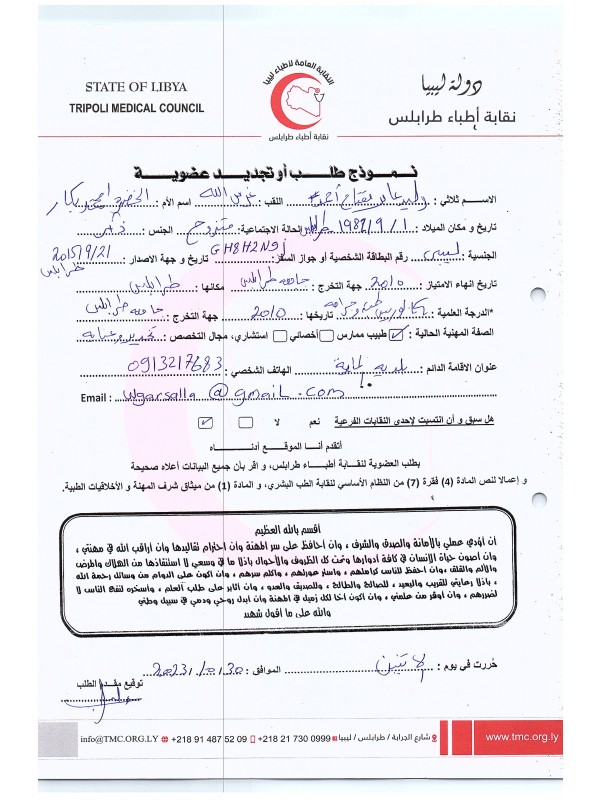 STATE OF LIBYA
TRIPOLI MEDICAL COUNCIL
النقابة العامة لأطباء ليبيا
نقابة أطباء طرابلس
دولة ليبيا
نقابة أطباء طرابلس
نمـوذج طلـــب أو تجديـد عضويـــة
الاســم ثلاثي : وليد عامر مفتاح أحمد اللقب : غرس الله اسم الأم :
تاريخ و مكان الميلاد : 1987/9/1 طرابلس الحالة الاجتماعية : متزوج الجنس : ذكر
الجنسية : ليبي رقم البطاقة الشخصية أو جواز السفر : GH8H2N تاريخ و جهة الاصدار : 2015/9/21 طرابلس
تاريخ انهاء الامتياز : 2010 جهة التخرج : جامعة طرابلس مكانها : طرابلس
*الدرجة العلمية : بكالوريس طب وجراحة تاريخها : 2010 جهة التخرج : جامعة طرابلس
الصفة المهنية الحالية : ✓ طبيب ممارس أخصائي استشاري، مجال التخصص : تخدير وعناية
عنوان الاقامة الدائم : بلدية الهاتف الشخصي : 0913217683
Email : wgarsalla@gmail.com
هل سبق و أن انتسبت لإحدى النقابات الفرعية نعم لا ✓
أتقدم أنـــا الموقــع أدنــــاه
بطلب العضوية لنقابة أطبـــاء طرابلس، و اقر بأن جميع البيانات أعلاه صحيحة
و إعمالا لنص المادة (4) فقرة (7) من النظام الأساسي لنقابة الطب البشري، و المادة (1) من ميثاق شرف المهنة و الأخلاقيات الطبية.
أقسم بالله العظيم
أن أؤدي عملي بالأمانة والصدق والشرف ، وان احافظ على سر المهنة وان احترام تقاليدها وان اراقب الله في مهنتي ،
وان أصون حياة الإنسان في كافة ادوارها وتحت كل الظروف والأحوال باذلا ما في وسعي لا استنقاذها من الهلاك والمرض
والألم والقلق، وان احفظ للناس كرامتهم ، واستر عورتهم ، واكتم سرهم ، وان اكون على الدوام من وسائل رحمة الله
، باذلا رعايتي للقريب والبعيد ، للصالح والطالح ، وللصديق والعدو ، وان أثابر على طلب العلم ، واسخره لنفع الناس لا
لضررهم ، وان اوقر من علمني ، وان اكون اخا لكل زميل في المهنة وان ابذل روحي ودمي في سبيل وطني
والله على ما أقول شهيد
حُررت في يوم : الاثنين الموافق : 2023/10/30
توقيع مقدم الطلب
info@TMC.ORG.LY +218 91 487 52 09 +218 21 730 0999 شارع الجرابة / طرابلس / ليبيا
www.tmc.org.ly